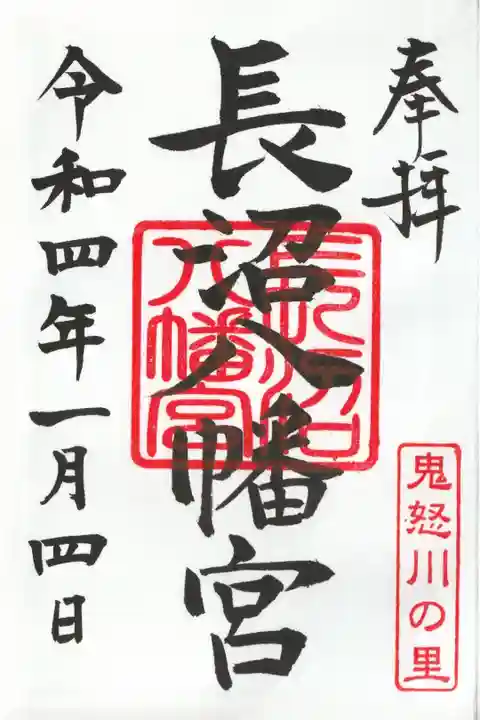 奉拝
鬼怒川の里
長沼八幡宮
長沼八幡宮
令和四年一月四日